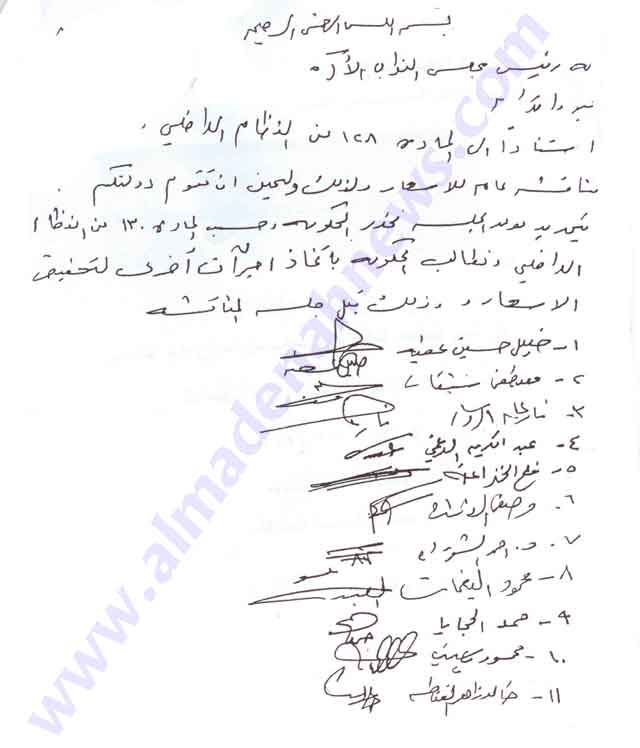 بسم الله الرحمن الرحيم
رئيس مجلس النواب الأكرم
استناداً الى المادة ١٢٨ من النظام الداخلي ،
مناقشة عامة للأسعار وذلك ولحين ان تقوم دولتكم .
بتحديد موعد الجلسة بحضور الحكومة وحسب المادة ١٣٠ من النظام
الداخلي ونطالب الحكومة باتخاذ اجراءات أخرى لتخفيض
الاسعار وذلك قبل جلسة المناقشة
١- خليل حسين عطيه
٢- مصطفى شنيكات
٣-
٤- عبد الكريم الدغمي
٥- مفلح الخزاعله
٦- وصفي الرواشدة
٧- د. احمد الشقران
٨- محمود
٩- حمد الحجايا
١٠- محمود
١١-
www.almadenahnews.com